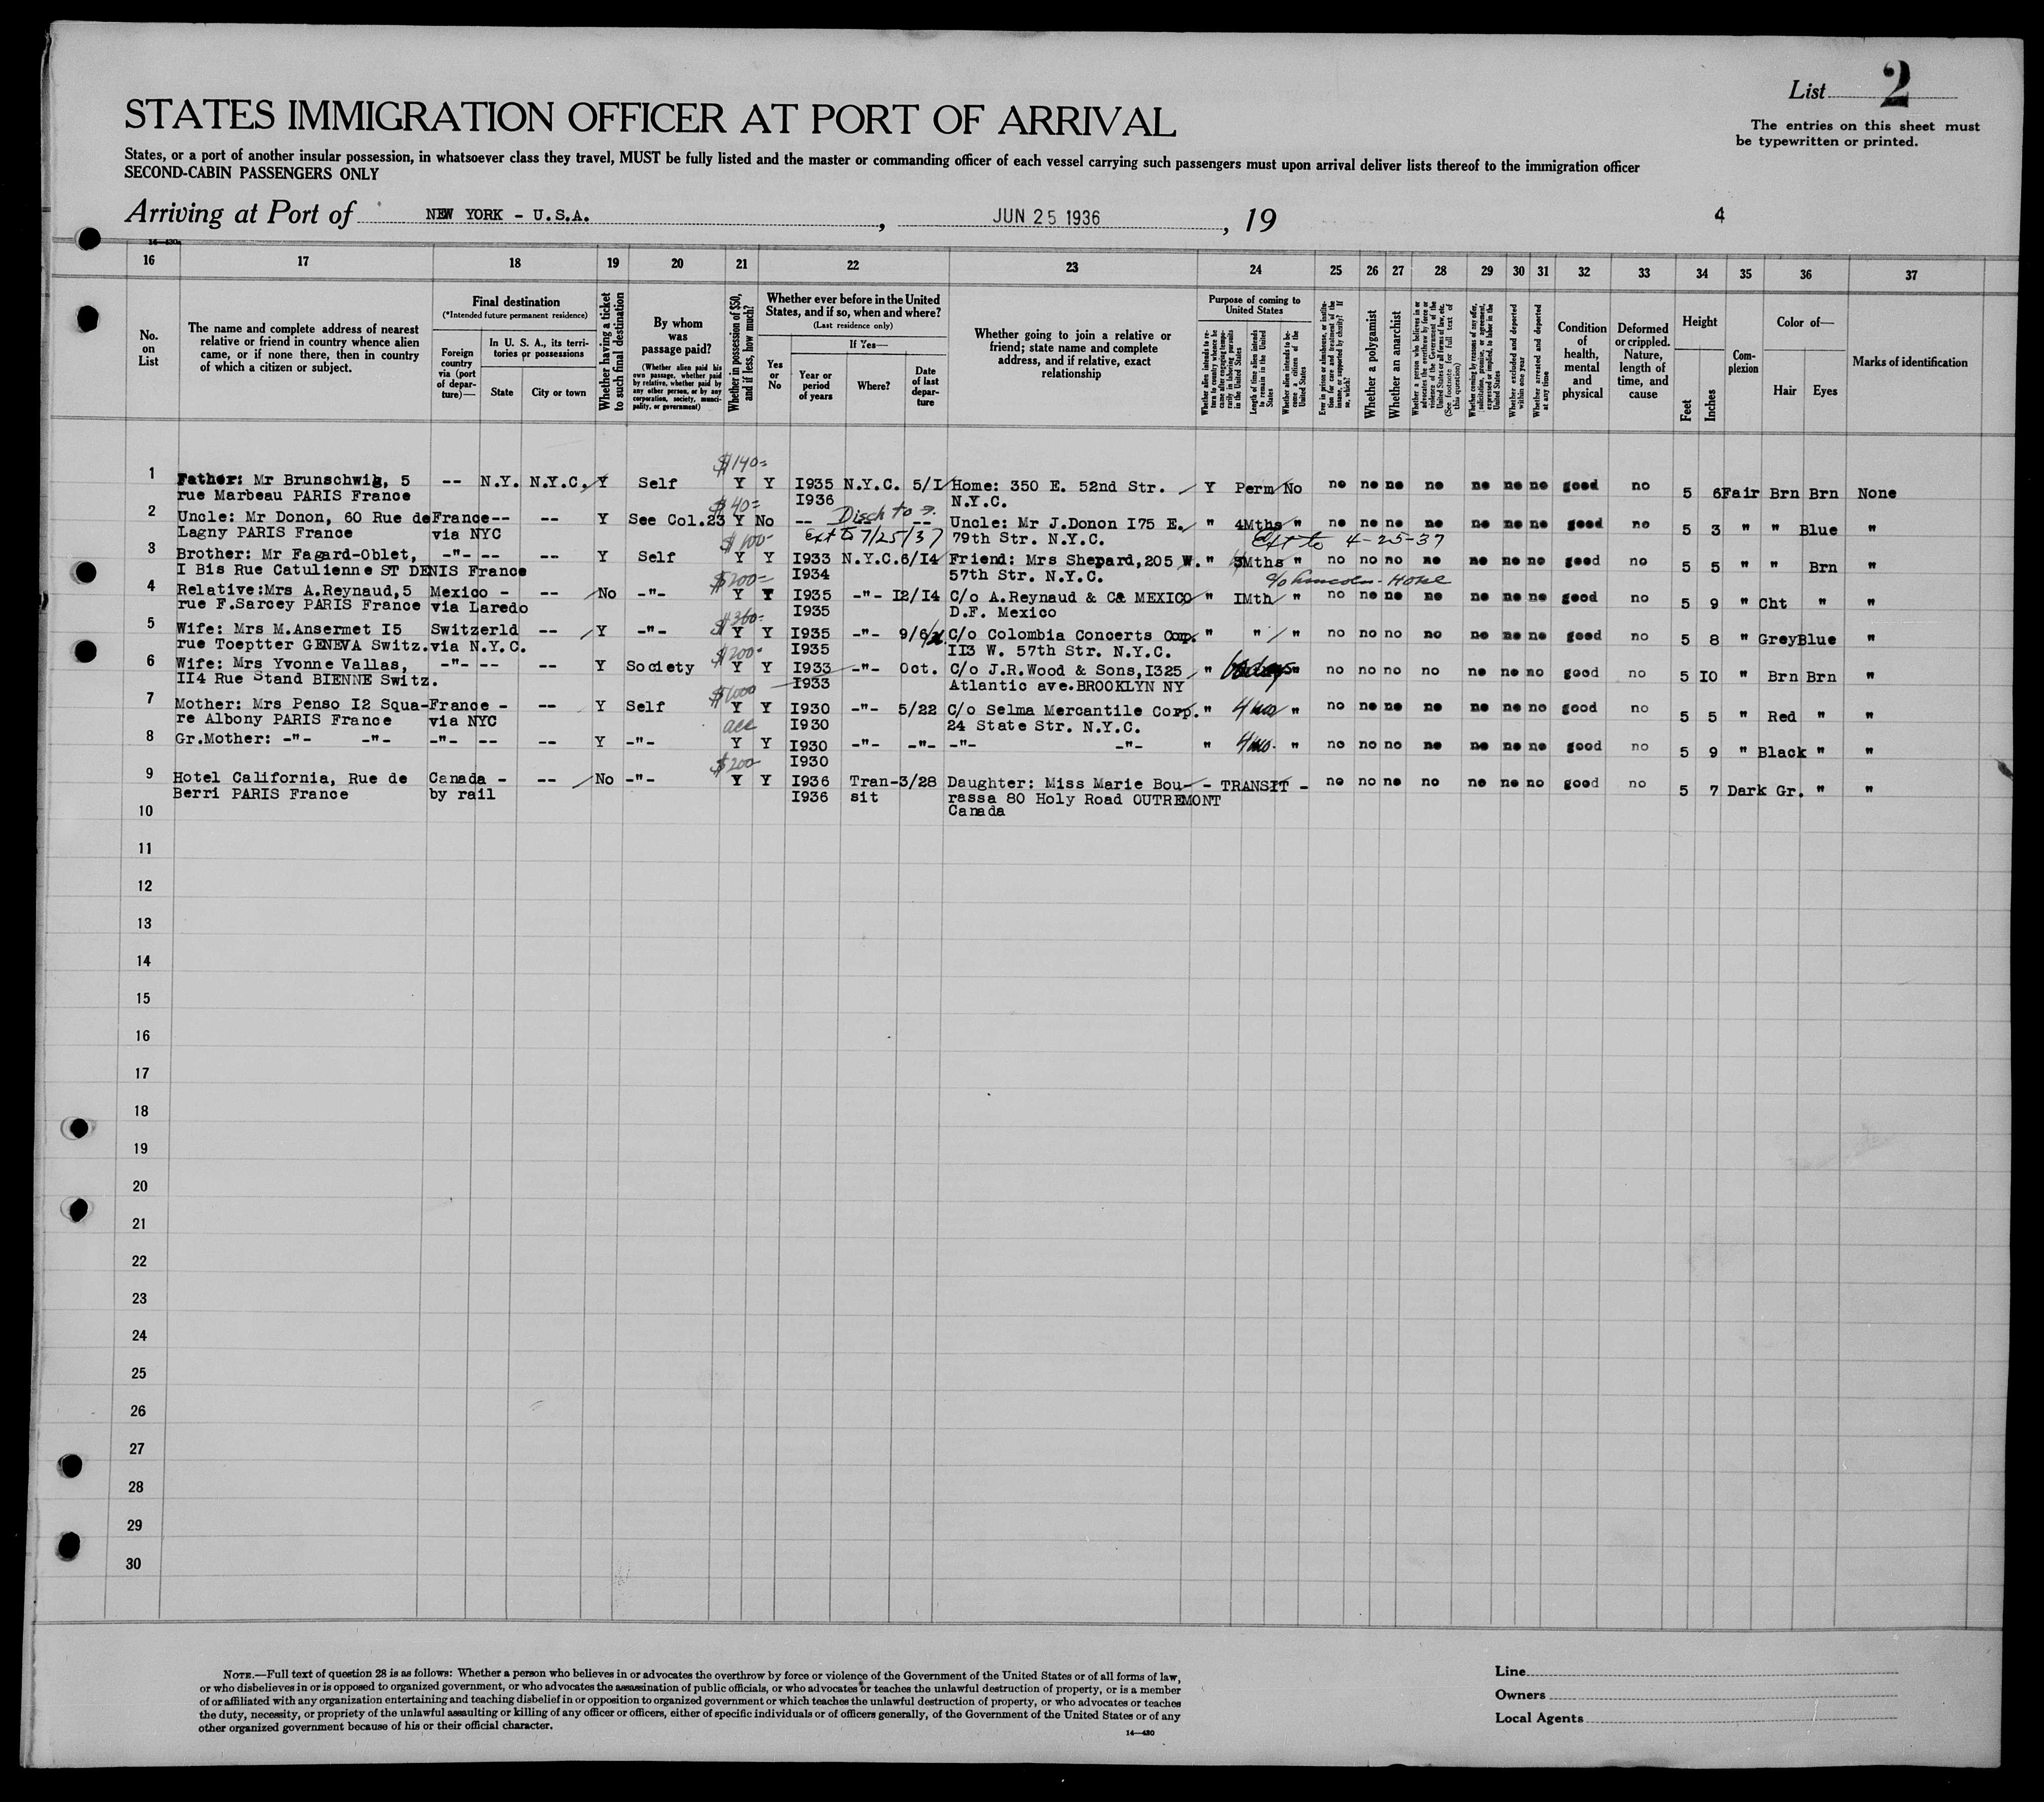 List 2
The entries on this sheet must
be typewritten or printed.
STATES IMMIGRATION OFFICER AT PORT OF ARRIVAL
States, or a port of another insular possession, in whatsoever class they travel, MUST be fully listed and the master or commanding officer of each vessel carrying such passengers must upon arrival deliver lists thereof to the immigration officer
SECOND-CABIN PASSENGERS ONLY
Arriving at Port of NEW YORK - U.S.A. , JUN 25 1936 , 19 4
14-430
16 17 18 19 20 21 22 23 24 25 26 27 28 29 30 31 32 33 34 35 36 37
No. on List
The name and complete address of nearest relative or friend in country whence alien came, or if none there, then in country of which a citizen or subject.
Final destination
(*Intended future permanent residence)
Foreign country via (port of departure)—
In U. S. A., its territories or possessions
State
City or town
Whether having a ticket to such final destination
By whom was passage paid?
(Whether alien paid his own passage, whether paid by relative, whether paid by any other person, or by any corporation, society, municipality, or government)
Whether in possession of $50, and if less, how much?
Whether ever before in the United States, and if so, when and where?
(Last residence only)
Yes or No
If Yes—
Year or period of years
Where?
Date of last departure
Whether going to join a relative or friend; state name and complete address, and if relative, exact relationship
Purpose of coming to United States
Whether alien intends to return to country whence he came after engaging temporarily in laboring pursuits in the United States
Length of time alien intends to remain in the United States
Whether alien intends to become a citizen of the United States
Ever in prison or almshouse, or institution for care and treatment of the insane, or supported by charity? If so, which?
Whether a polygamist
Whether an anarchist
Whether a person who believes in or advocates the overthrow by force or violence of the Government of the United States or all forms of law, etc. (See footnote for full text of this question)
Whether coming by reason of any offer, solicitation, promise, or agreement, expressed or implied, to labor in the United States
Whether excluded and deported within one year
Whether arrested and deported at any time
Condition of health, mental and physical
Deformed or crippled. Nature, length of time, and cause
Height
Feet
Inches
Complexion
Color of—
Hair
Eyes
Marks of identification
$140=
1 Father: Mr Brunschwig, 5 -- N.Y. N.Y.C. Y Self Y Y I935 N.Y.C. 5/I Home: 350 E. 52nd Str. Y Perm No no no no no no no no good no 5 6 Fair Brn Brn None
rue Marbeau PARIS France I936 N.Y.C.
$40= Disch to
2 Uncle: Mr Donon, 60 Rue de France-- -- Y See Col.23 Y No -- -- -- Uncle: Mr J.Donon I75 E. " 4Mths " no no no no no no no good no 5 3 " " Blue "
Lagny PARIS France via NYC Ext to 7/25/37 79th Str. N.Y.C. Ext to 4-25-37
$100-
3 Brother: Mr Fagard-Oblet, -"- -- -- Y Self Y Y I933 N.Y.C. 6/I4 Friend: Mrs Shepard,205 W. " Mths " no no no no no no no good no 5 5 " " Brn "
I Bis Rue Catulienne ST DENIS France I934 57th Str. N.Y.C. c/o Lincoln - Hotel
$200=
4 Relative:Mrs A.Reynaud,5 Mexico - -- No -"- Y Y I935 -"- I2/I4 C/o A.Reynaud & Ca MEXICO " IMth " no no no no no no no good no 5 9 " Cht " "
rue F.Sarcey PARIS France via Laredo I935 D.F. Mexico
$360-
5 Wife: Mrs M.Ansermet I5 Switzerld -- Y -"- Y Y I935 -"- 9/6/ C/o Colombia Concerts Corp. " " " no no no no no no no good no 5 8 " Grey Blue "
rue Toeptter GENEVA Switz. via N.Y.C. I935 II3 W. 57th Str. N.Y.C.
$200-
6 Wife: Mrs Yvonne Vallas, -"- -- -- Y Society Y Y I933 -"- Oct. C/o J.R.Wood & Sons,I325 " 60 days " no no no no no no no good no 5 I0 " Brn Brn "
II4 Rue Stand BIENNE Switz. I933 Atlantic ave.BROOKLYN NY
$1000
7 Mother: Mrs Penso I2 Squa- France - -- Y Self Y Y I930 -"- 5/22 C/o Selma Mercantile Corp. " 4 mo " no no no no no no no good no 5 5 " Red " "
re Albony PARIS France via NYC acc I930 24 State Str. N.Y.C.
8 Gr.Mother: -"- -"- -"- -- -- Y -"- Y Y I930 -"- -"- -"- -"- " 4 mo. " no no no no no no no good no 5 9 " Black " "
$200- I930
9 Hotel California, Rue de Canada - -- No -"- Y Y I936 Tran- 3/28 Daughter: Miss Marie Bou- - TRANSIT - no no no no no no no good no 5 7 Dark Gr. " "
Berri PARIS France by rail I936 sit rassa 80 Holy Road OUTREMONT
10 Canada
11
12
13
14
15
16
17
18
19
20
21
22
23
24
25
26
27
28
29
30
NOTE.—Full text of question 28 is as follows: Whether a person who believes in or advocates the overthrow by force or violence of the Government of the United States or of all forms of law,
or who disbelieves in or is opposed to organized government, or who advocates the assassination of public officials, or who advocates or teaches the unlawful destruction of property, or is a member
of or affiliated with any organization entertaining and teaching disbelief in or opposition to organized government or which teaches the unlawful destruction of property, or who advocates or teaches
the duty, necessity, or propriety of the unlawful assaulting or killing of any officer or officers, either of specific individuals or of officers generally, of the Government of the United States or of any
other organized government because of his or their official character.
14-430
Line
Owners
Local Agents